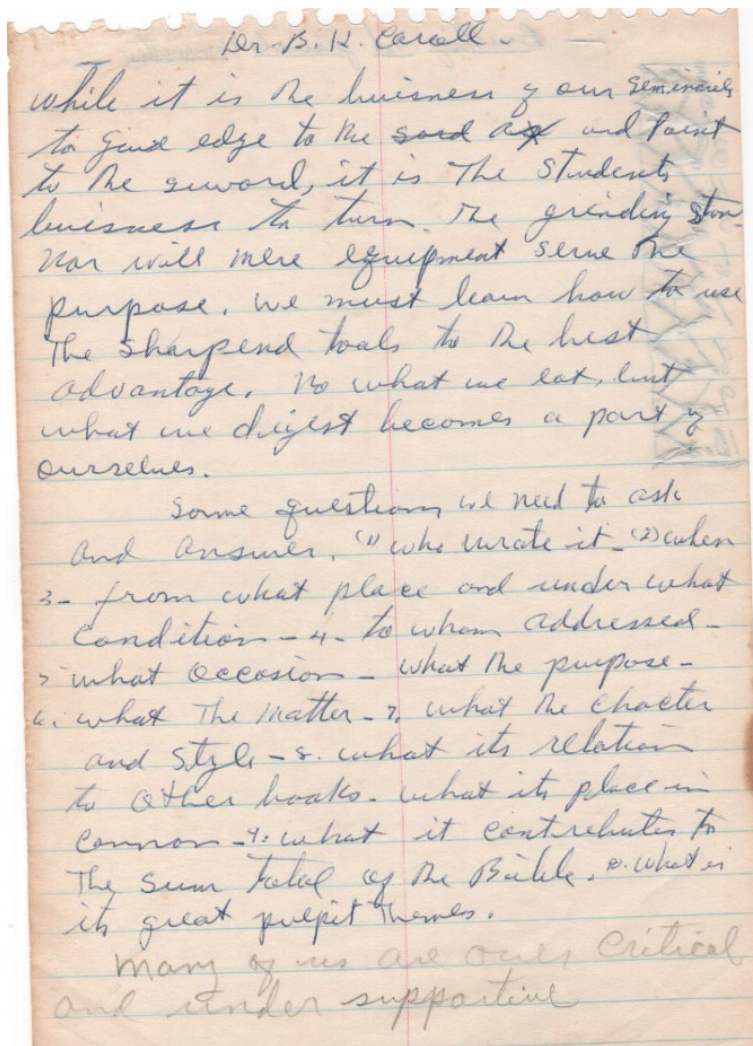 Dr. B. H. Caroll -
while it is the buisness of our Seminaries
to give edge to the sord ax and Point
to the sword, it is The Students
buisness to turn the grinding ston
Nor will mere equipment serve the
purpose. we must learn how to use
The sharpend tools to the best
advantage. No what we eat, but
what we digest becomes a part of
ourselves.
Some questions we need to ask
And answer. (1) who wrate it - (2) when
3- from what place and under what
Condition - 4- to whom addressed -
5. what Occasion - what the purpose -
6. what The Matter - 7. what the Chacter
and Style - 8. what its relation
to Other books - what its place in
Connon - 9. what it contrebutes to
The Sum total of the Bible. 10. what is
its great pulpit Themes.
Many of us are over Critical
and under supportive